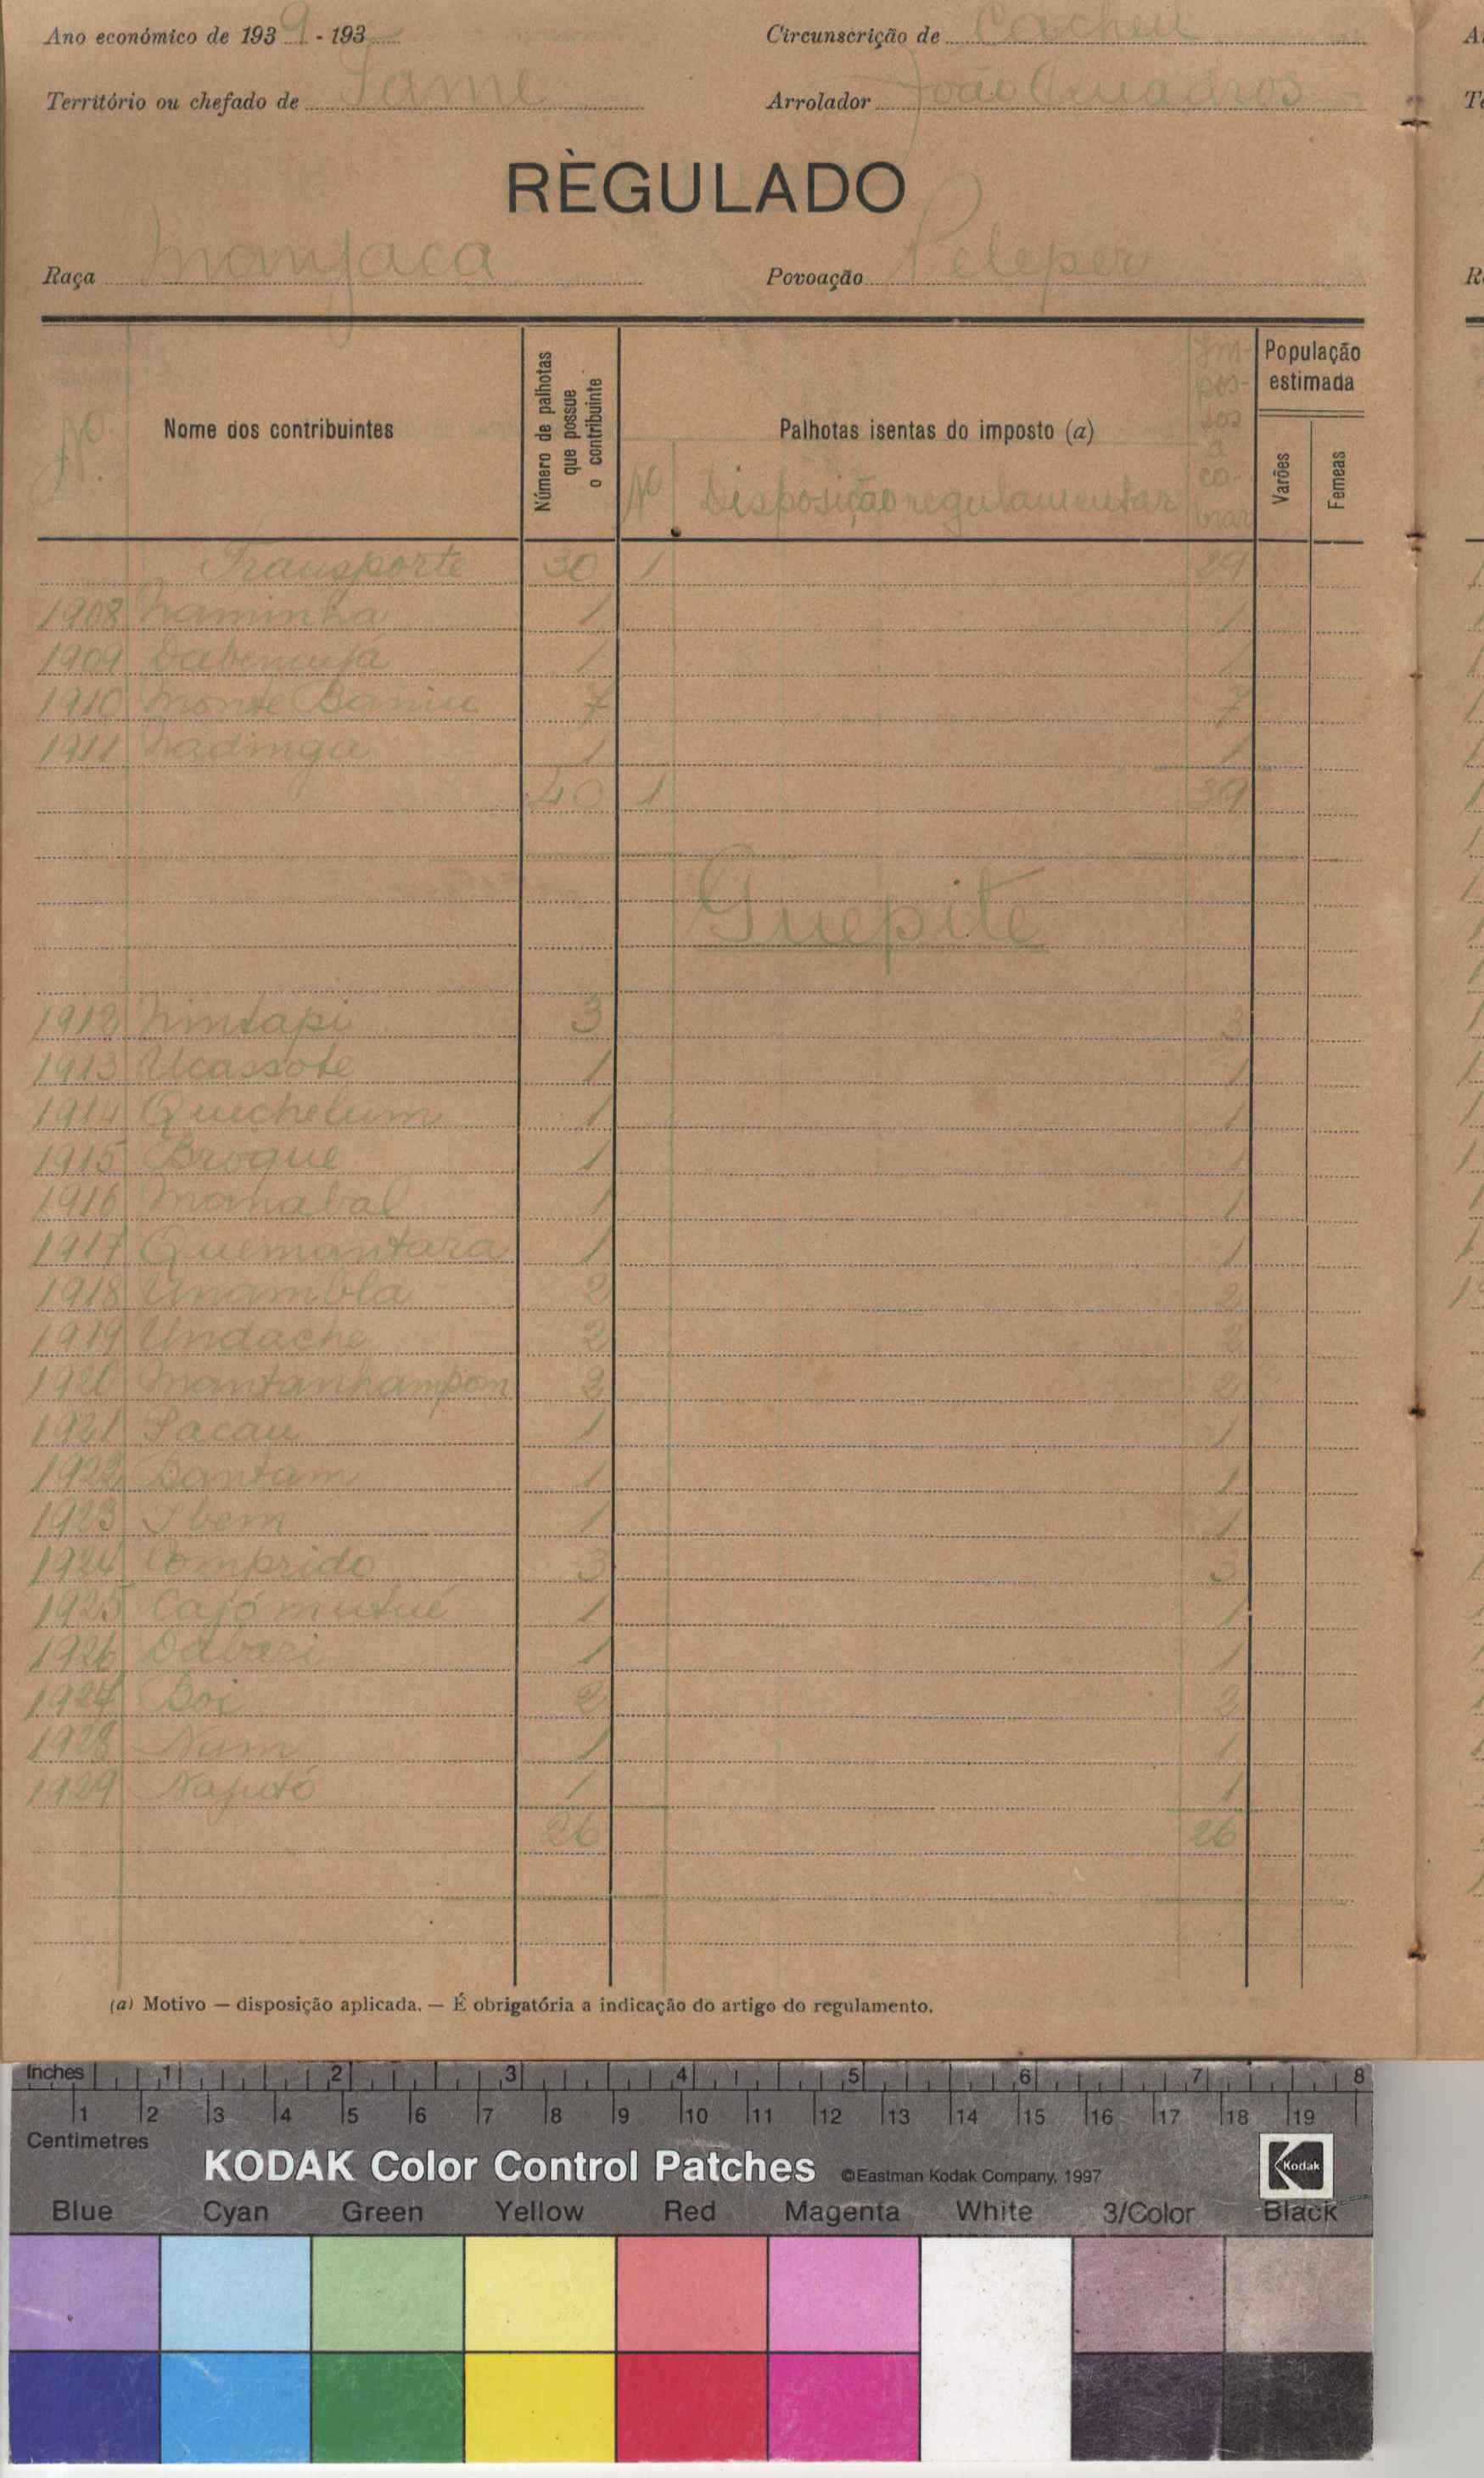 Ano económico de 1939 - 193
Circunscrição de Cacheu
Território ou chefado de Iame
Arrolador João Quadros
RÈGULADO
Raça Manjaca
Povoação Peleper
Nº
Nome dos contribuintes
Número de palhotas que possue o contribuinte
Palhotas isentas do imposto (a)
Nº
Disposição regulamentar
Im-
pos-
tos
a
co-
brar
População estimada
Varões
Femeas
Transporte 30 1 29
1908 Naminha 1 1
1909 Dabencujá 1 1
1910 Monte Baniu 7 7
1911 Nadinga 1 1
40 1 39
Guepite
1912 Nintapi 3 3
1913 Ucassote 1 1
1914 Quechelum 1 1
1915 Broque 1 1
1916 Manabal 1 1
1917 Quemantara 1 1
1918 Unambla 2 2
1919 Undache 2 2
1920 Mantanhampom 2 2
1921 Pacau 1 1
1922 Bantam 1 1
1923 Ibem 1 1
1924 Comprido 3 3
1925 Cajó mutué 1 1
1926 Dabari 1 1
1927 Boi 2 2
1928 Num 1 1
1929 Najutó 1 1
26 26
(a) Motivo — disposição aplicada. — É obrigatória a indicação do artigo do regulamento.
Inches 1 2 3 4 5 6 7 8
1 2 3 4 5 6 7 8 9 10 11 12 13 14 15 16 17 18 19
Centimetres
KODAK Color Control Patches ©Eastman Kodak Company, 1997 Kodak
Blue Cyan Green Yellow Red Magenta White 3/Color Black